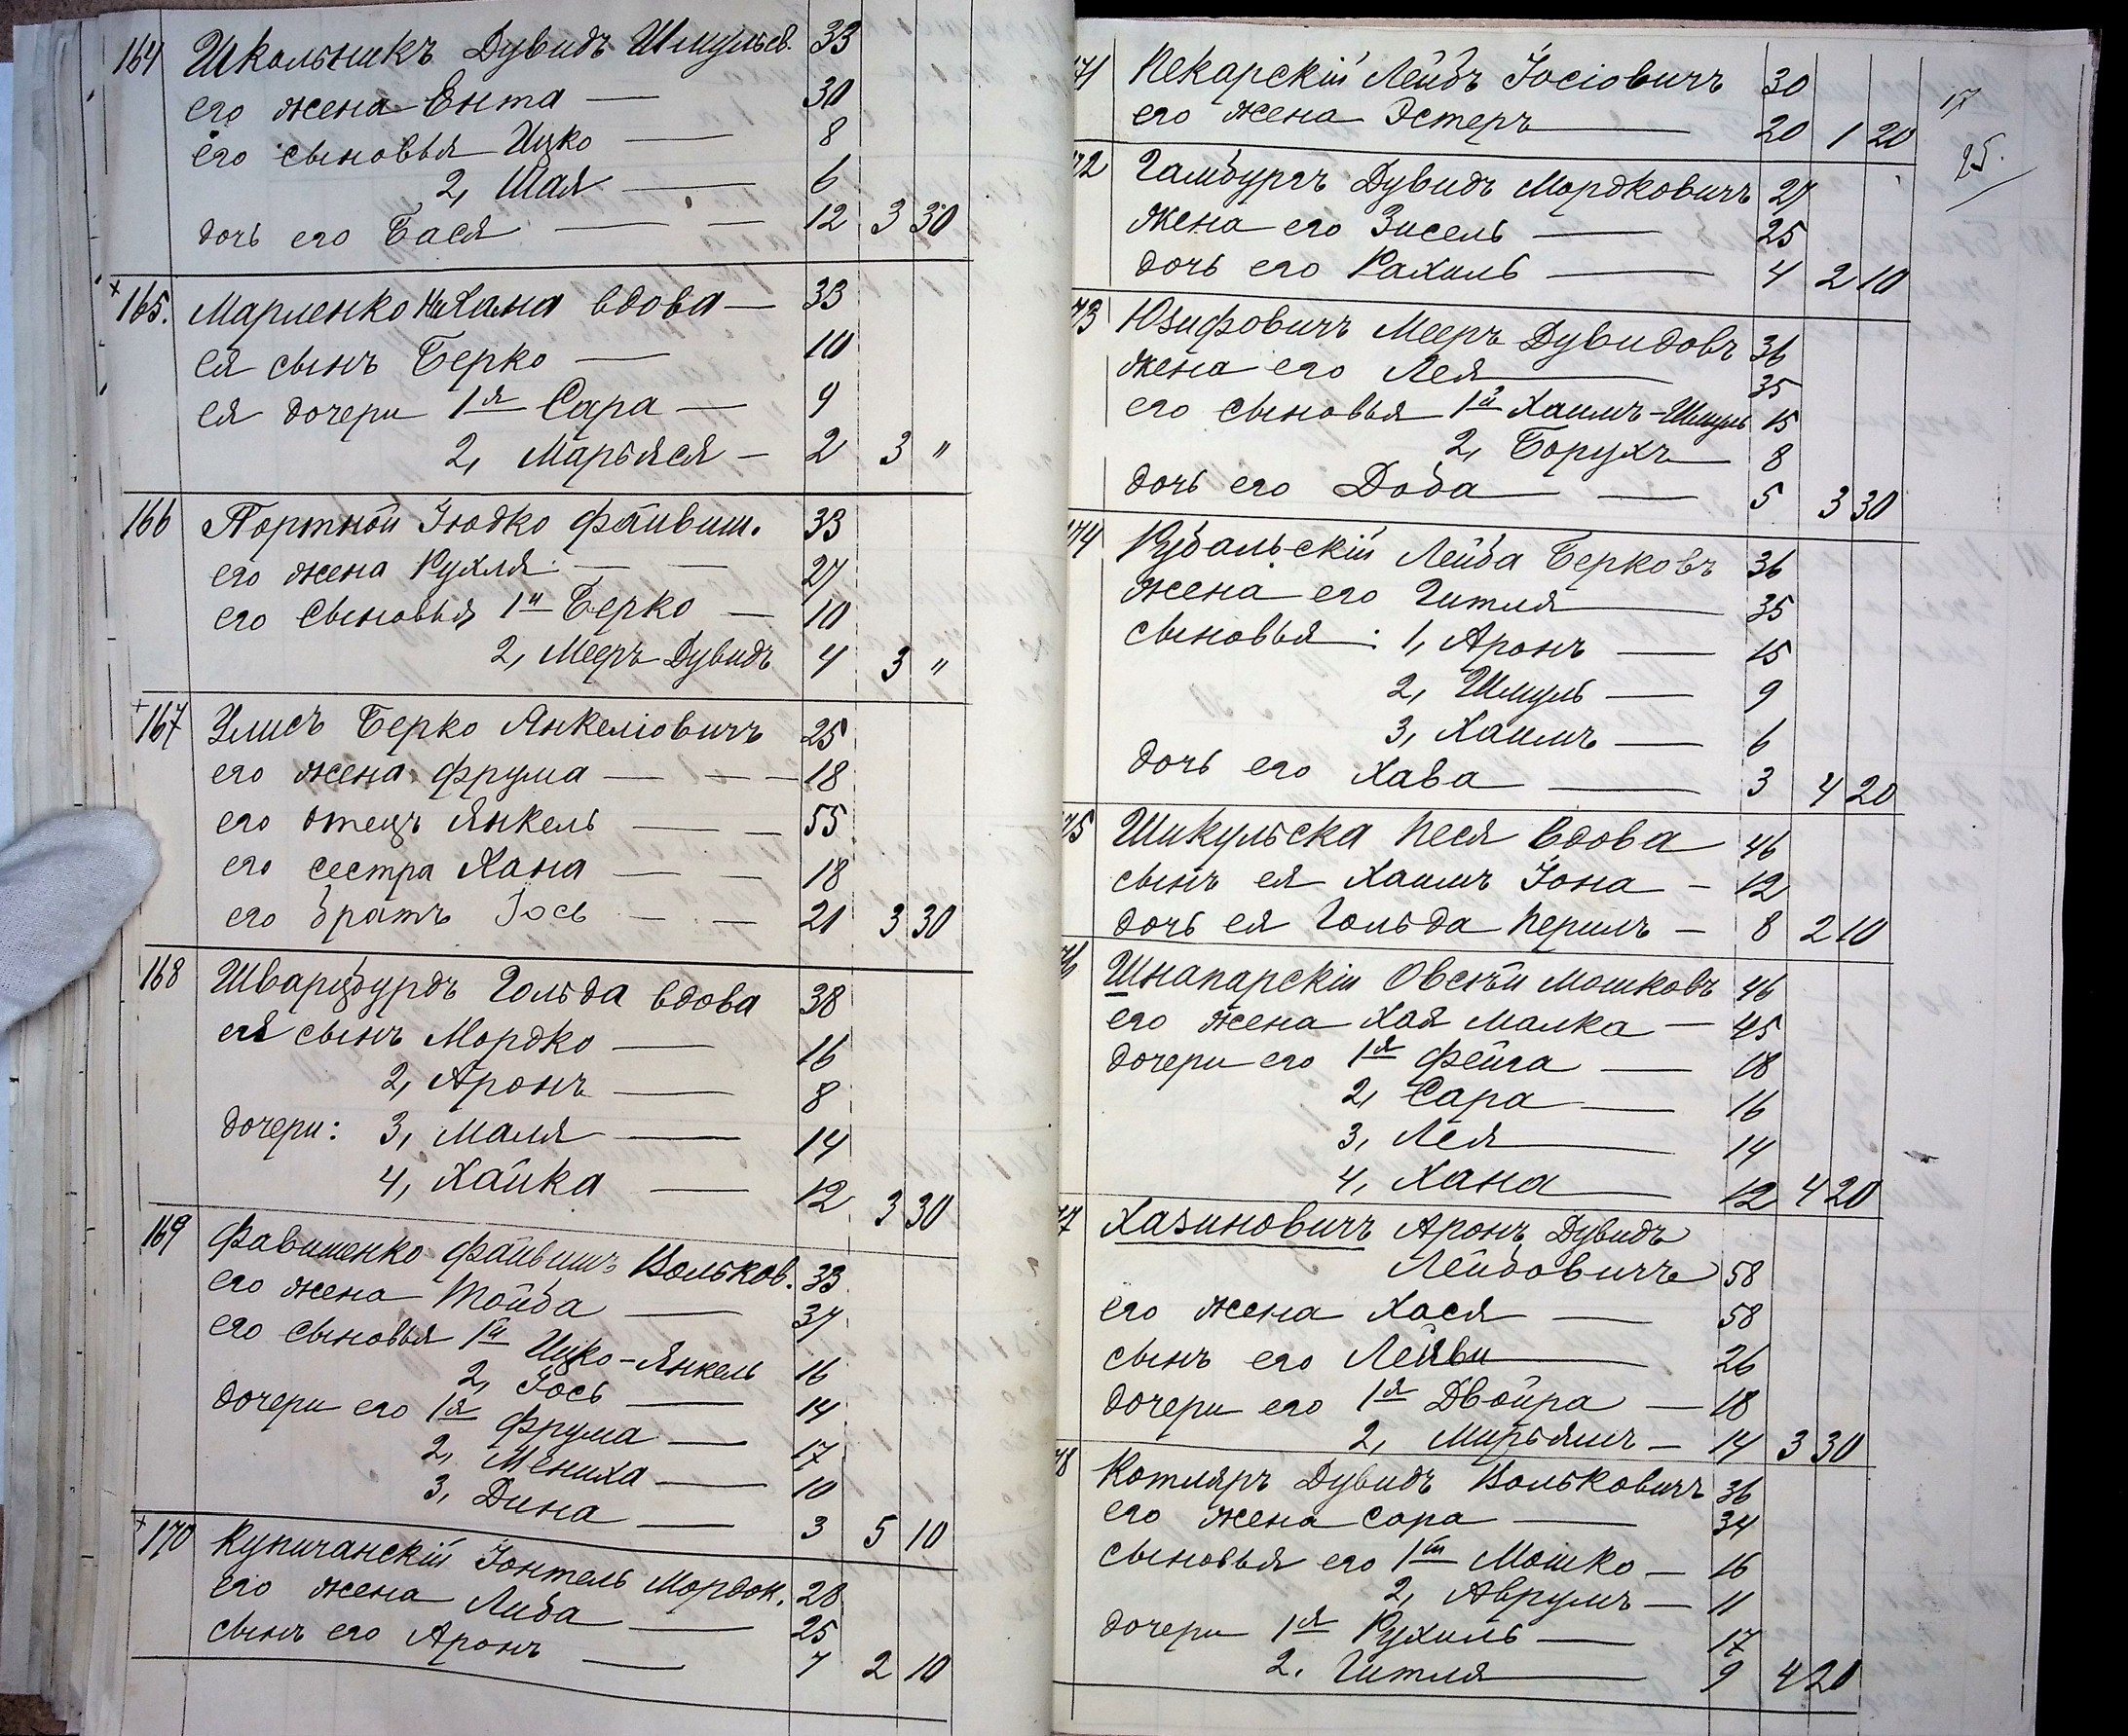 164 Школьникъ Дувидъ Шмульев. 33
его жена Ента — 30
его сыновья Ицко — 8
2, Шая — 6
дочь его Бася — — — 12 3 30
165. Марленко Хана вдова — 33
ея сынъ Берко — 10
ея дочери 1я Сара — 9
2, Марьяся — 2 3 "
166 Портной Іюдко Файвиш. 33
его жена Рухля — — 27
его сыновья 1й Берко — 10
2, Мееръ Дувидъ 4 3 "
167 Улисъ Берко Янкеліовичъ 25
его жена Фрума — — — 18
его отецъ Янкель — — 55
его сестра Хана — — 18
его братъ Іось — — 21 3 30
168 Шварцбурдъ Гольда вдова 38
ея сынъ Мордко — 16
2, Аронъ — 8
дочери: 3, Маля — 14
4, Хайка — 12 3 30
169 Фавишенко Файвишъ Вольков. 33
его жена Тойба — 37
его сыновья 1й Ицко-Янкель 16
2, Іось — 14
дочери его 1я Фрума — 17
2, Мениха — 10
3, Дина — 3 5 10
170 Купичанскій Іонтель Мордок. 28
его жена Либа — 25
сынъ его Аронъ — 7 2 10
17
25.
71 Пекарскій Лейбъ Іосіовичъ 30
его жена Эстеръ — 20 1 20
72 Гамбургъ Дувидъ Мордковичъ 27
жена его Зисель — 25
дочь его Рахиль — 4 2 10
73 Юзифовичъ Мееръ Дувидовъ 36
жена его Лея — 35
его сыновья 1й Хаимъ-Шмуль 15
2, Борухъ — 8
дочь его Доба — — 5 3 30
174 Рубальскій Лейба Берковъ 36
жена его Гитля — 35
сыновья: 1, Аронъ — 15
2, Шмуль — 9
3, Хаимъ — 6
дочь его Хава — 3 4 20
75 Шикульска Песя вдова — 46
сынъ ея Хаимъ Іона — 12
дочь ея Гольда Перилъ — 8 2 10
76 Шнапарскій Овсѣй Мошковъ 46
его жена Хая Малка — 45
дочери его 1я Фейга — 18
2, Сара — 16
3, Лея — 14
4, Хана — 12 4 20
77 Хазиновичъ Аронъ Дувидъ
Лейбовичъ 58
его жена Хася — 58
сынъ его Лейви — 26
дочери его 1я Двойра — 18
2, Мирьямъ — 14 3 30
78 Котляръ Дувидъ Вольковичъ 36
его жена Сара — 34
сыновья его 1й Мошко — 16
2, Аврумъ — 11
дочери 1я Рухиль — 17
2. Гитля — 9 4 20